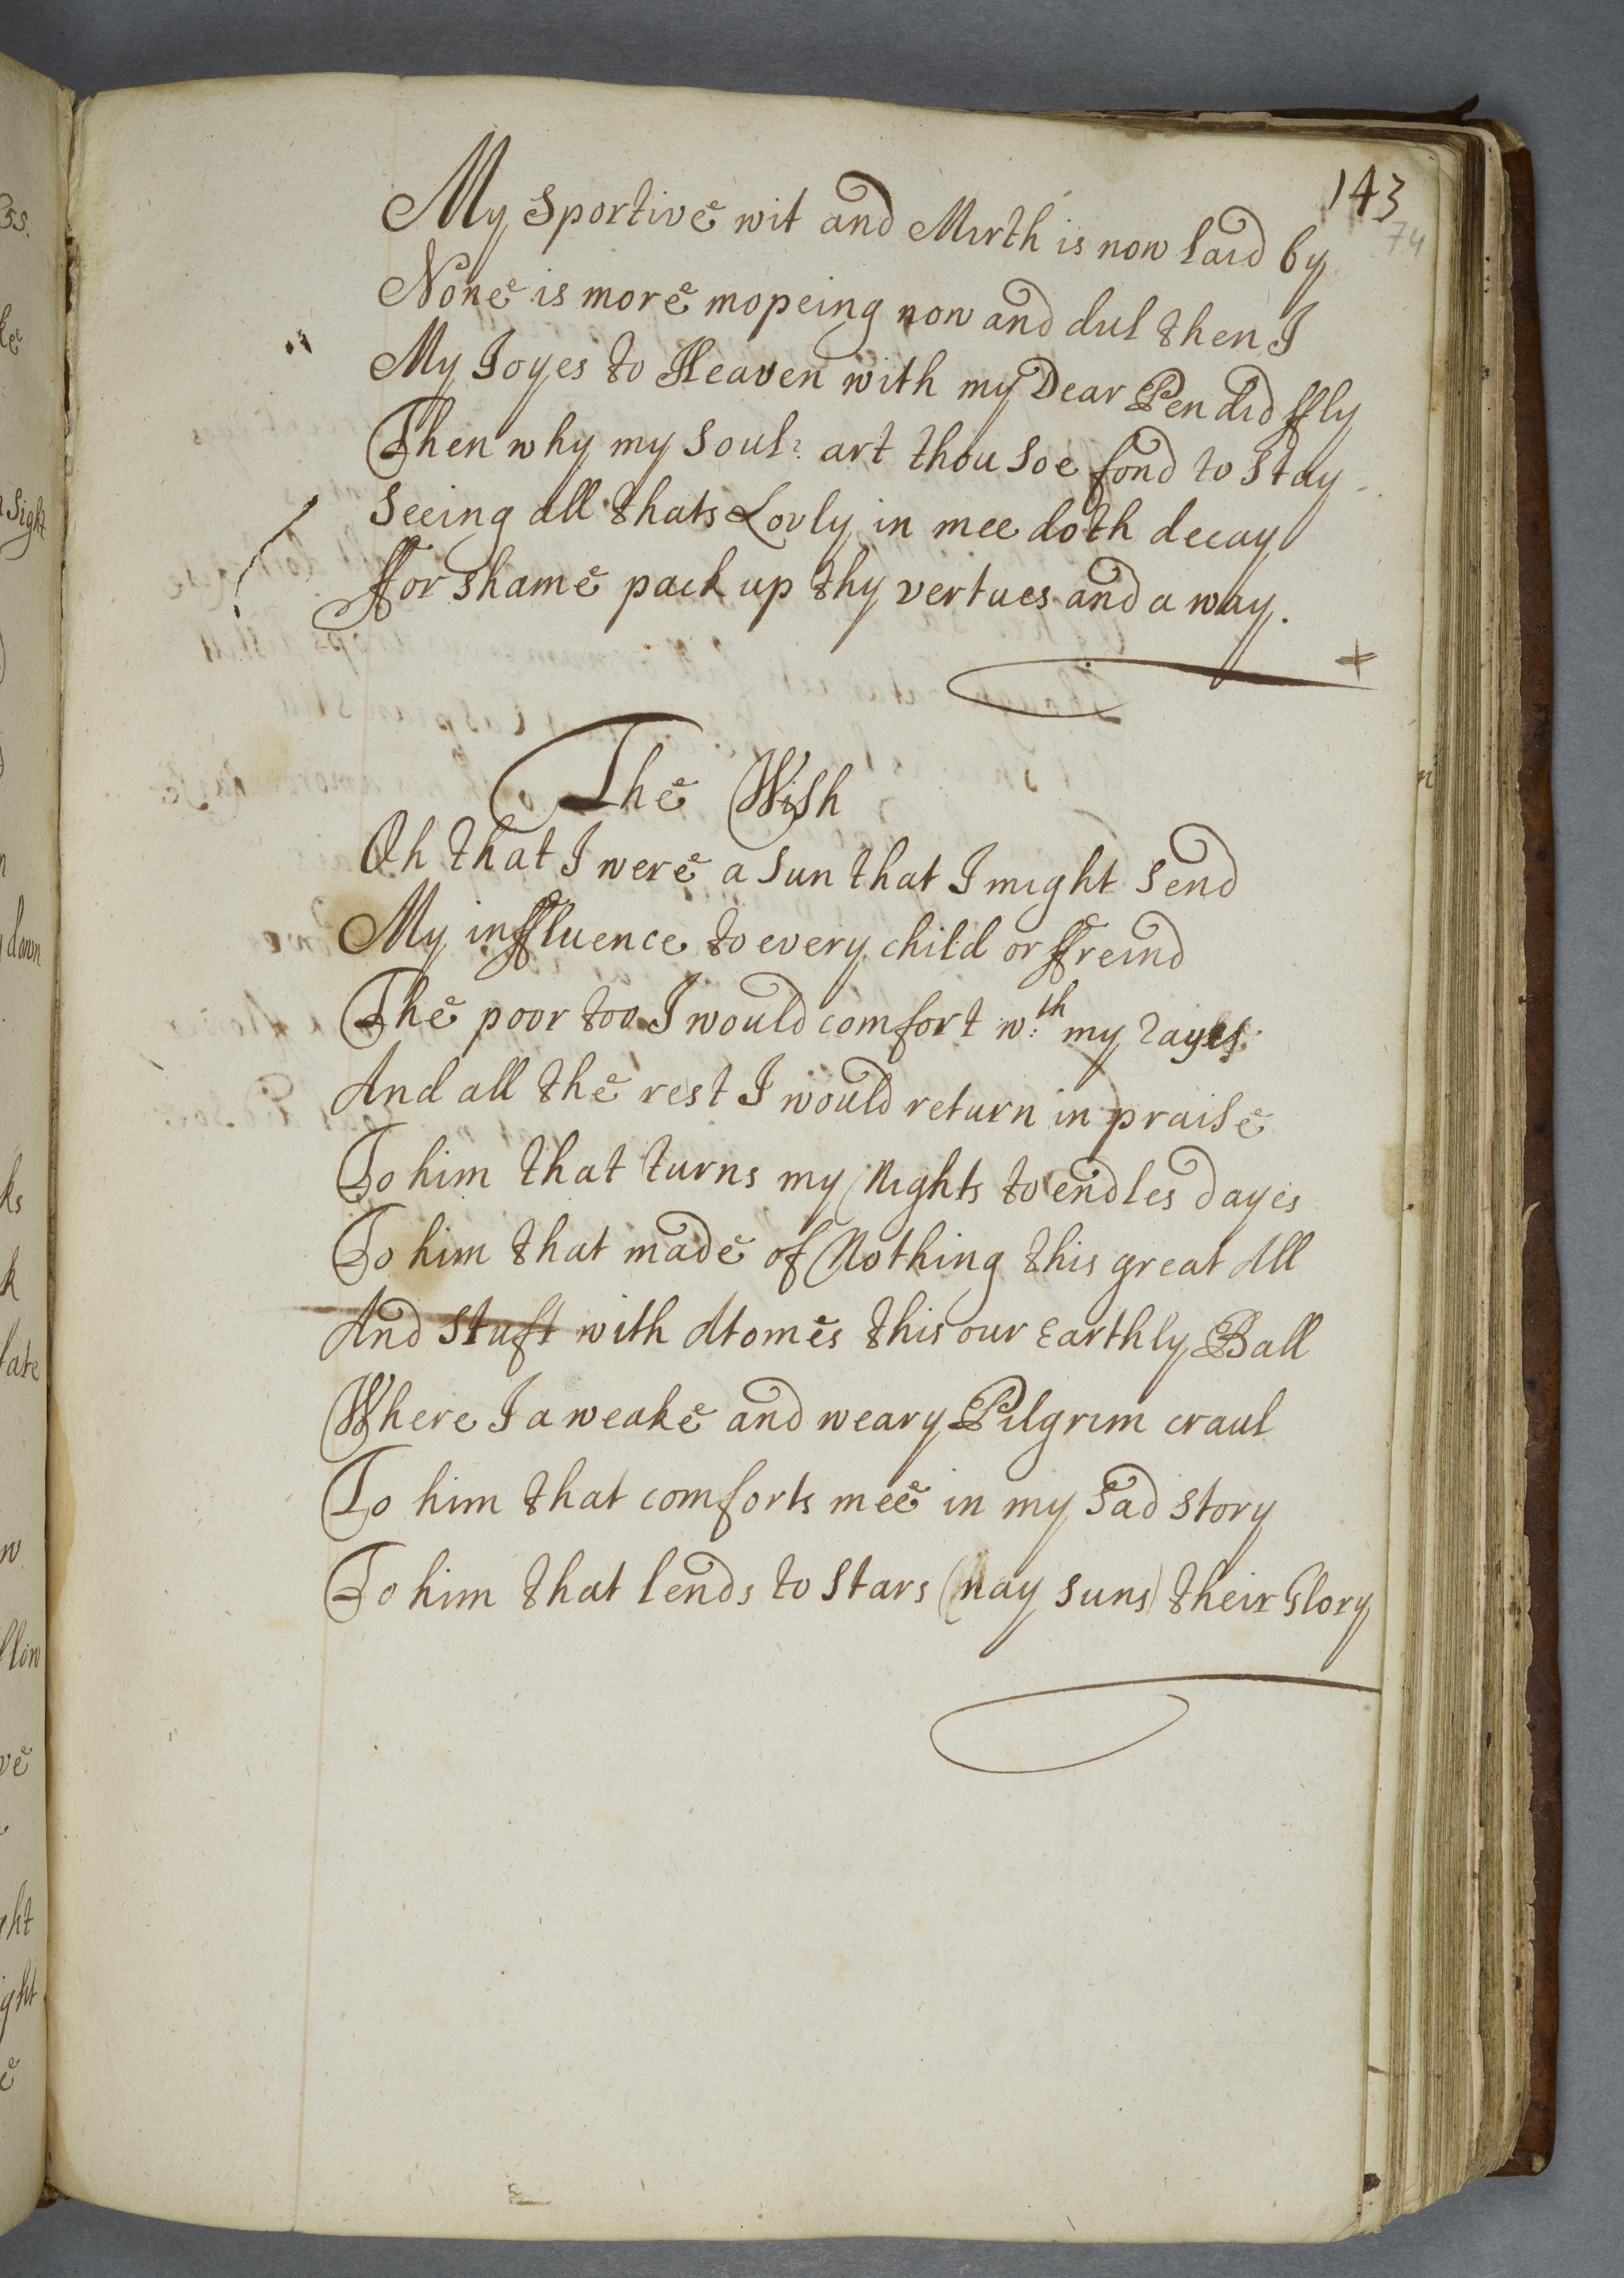 143
74
My Sportive wit and Mirth is now laid by
None is more mopeing now and dul then I
My Joyes to Heaven with my Dear Pen did ffly
Then why my Soul? art thou Soe fond to Stay
Seeing all thats Lovly in mee doth decay
ffor shame pack up thy vertues and a way.
The Wish
Oh that I were a Sun that I might Send
My inffluence to every child or ffreind
The poor too I would comfort wth my Rayes
And all the rest I would return in praise
To him that turns my Nights to endles dayes
To him that made of Nothing this great All
And Stuft with Atomes this our Earthly Ball
Where I a weake and weary Pilgrim craul
To him that comforts mee in my Sad Story
To him that lends to Stars (nay suns) their Glory